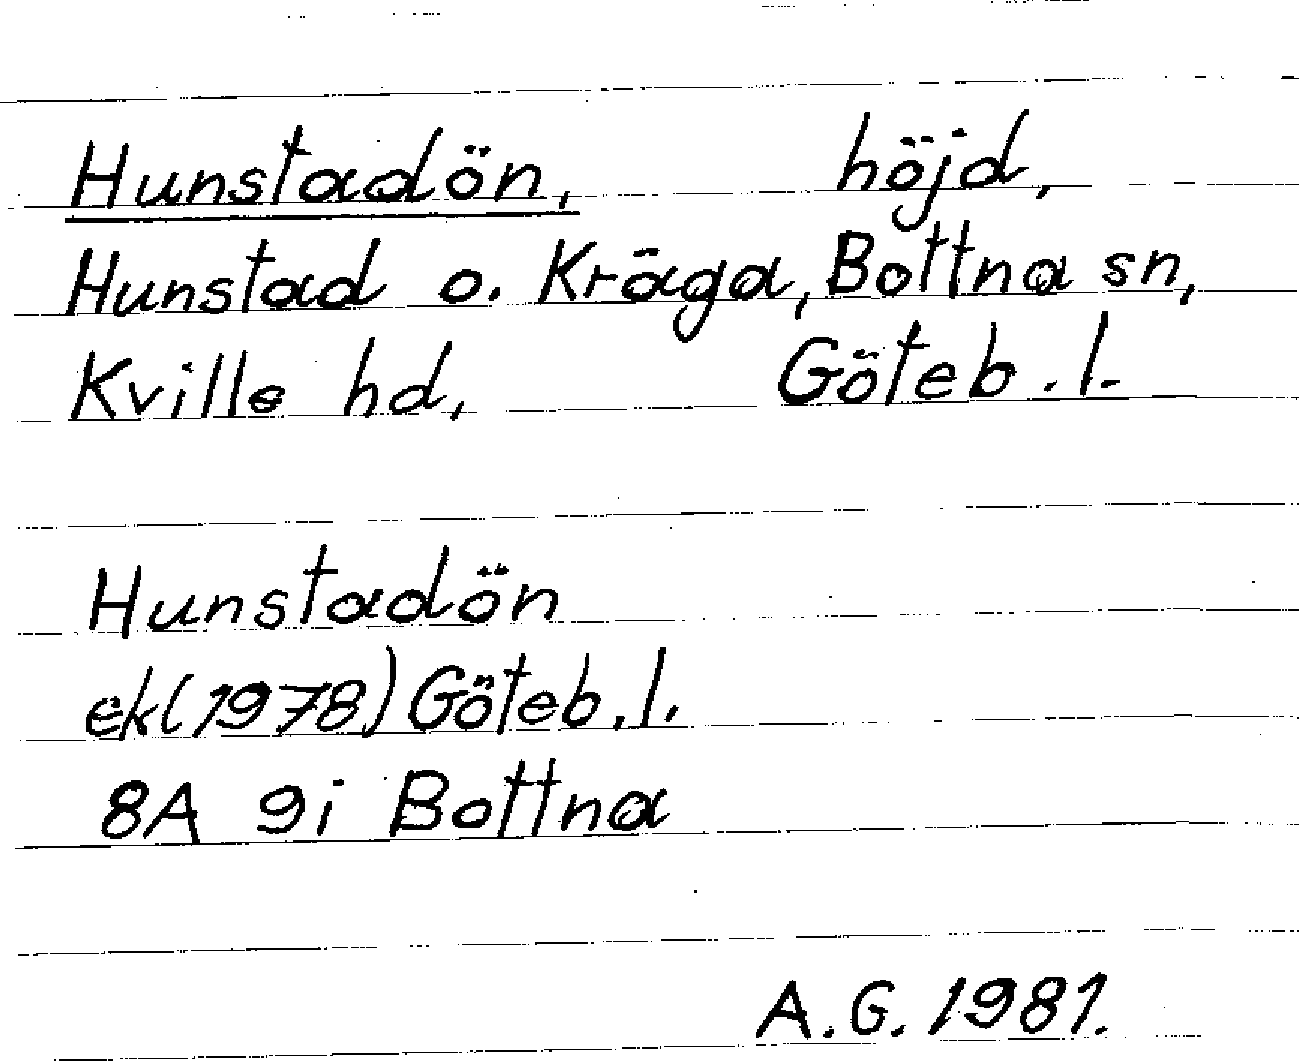 Hunstadön, höjd,
Hunstad o. Kräga, Bottna sn,
Kville hd, Göteb. l.
Hunstadön
ek(1978) Göteb. l.
8A 9i Bottna
A.G. 1981.